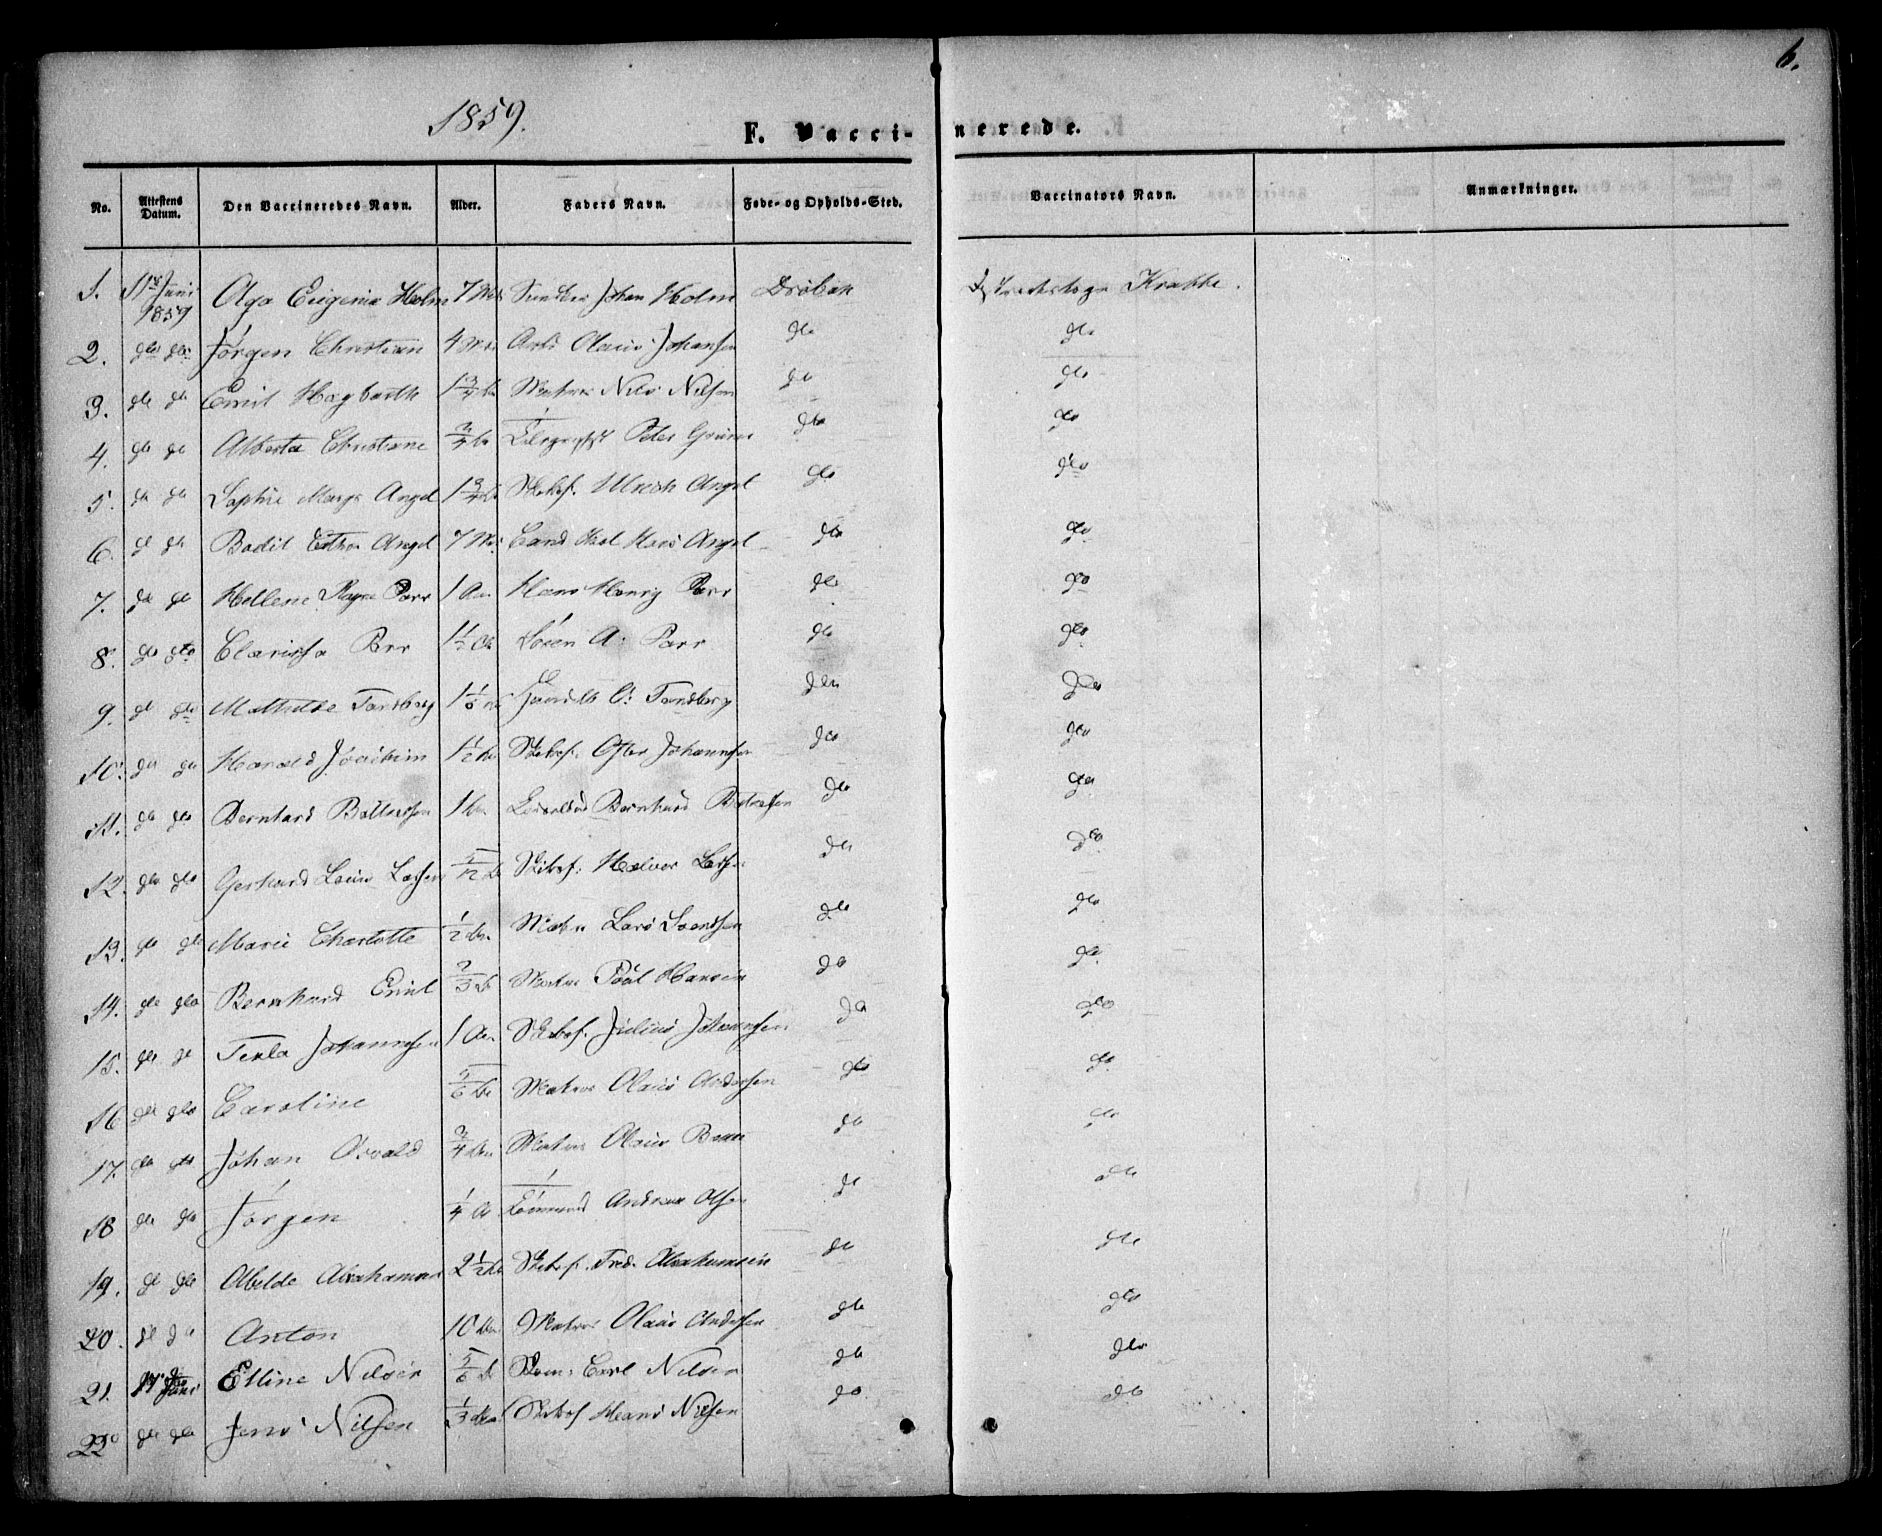 6.
1859.
F. Vaccinerede.
No. Attestens Datum. Den Vaccineredes Navn. Alder. Faders Navn. Føde- og Opholds-Sted. Vaccinators Navn. Anmærkninger.
1. 11te Juni 1859 Olga Eugenia Holm 7 Mdr Johan Holm Drøbak Krabbe.
2. do do Jörgen Christian 4 Mdr Olaus Johansen do do
3. do do Emil Hagbarth 1 3/4 Aar Matros Nils Nilsen do do
4. do do Alberta Christiane 3/4 Aar Peter do do
5. do do Sophie Marg. Angel 1 3/4 Aar Skibsf. Ulrich Angel do do
6. do do Bodil Angel 7 Mdr Hans Angel do do
7. do do Hellene Ragna Parr 1 Aar Hans Henry Parr do do
8. do do Clarissa Parr 1 1/2 Aar Sören A. Parr do do
9. do do Mathilde Tandberg 1 1/6 Aar O. Tandberg do do
10. do do Harald Joachim 1 1/2 Aar Skibsf. Johannessen do do
11. do do Bernhard 1 Aar Bernhard do do
12. do do Gerhard Louis 5/12 Aar Skibsf. Halvor do do
13. do do Marie Charlotte 1/2 Aar Matros Lars Svendsen do do
14. do do Bernhard Emil 2/3 Aar Matros Paal Hansen do do
15. do do Tekla Johannessen 1 Aar Skibsf. Julius Johannessen do do
16 do do Caroline 5/6 Aar Matros Olaus Andersen do do
17. do do Johan Osvald 3/4 Aar Matros Olaus do do
18 do do Jörgen 1/4 Aar Tömmermd Andreas Olsen do do
19. do do Abrahamsen 2 1/2 Aar Skibsf. Fred. Abrahamsen do do
20. do do Anton 10 Aar Matros Olaus Andersen do do
21. Juni Elline Nilsen 5/6 Aar Carl Nilsen do do
22 do do Jens Nilsen 1/3 Aar Skibsf Hans Nilsen do do